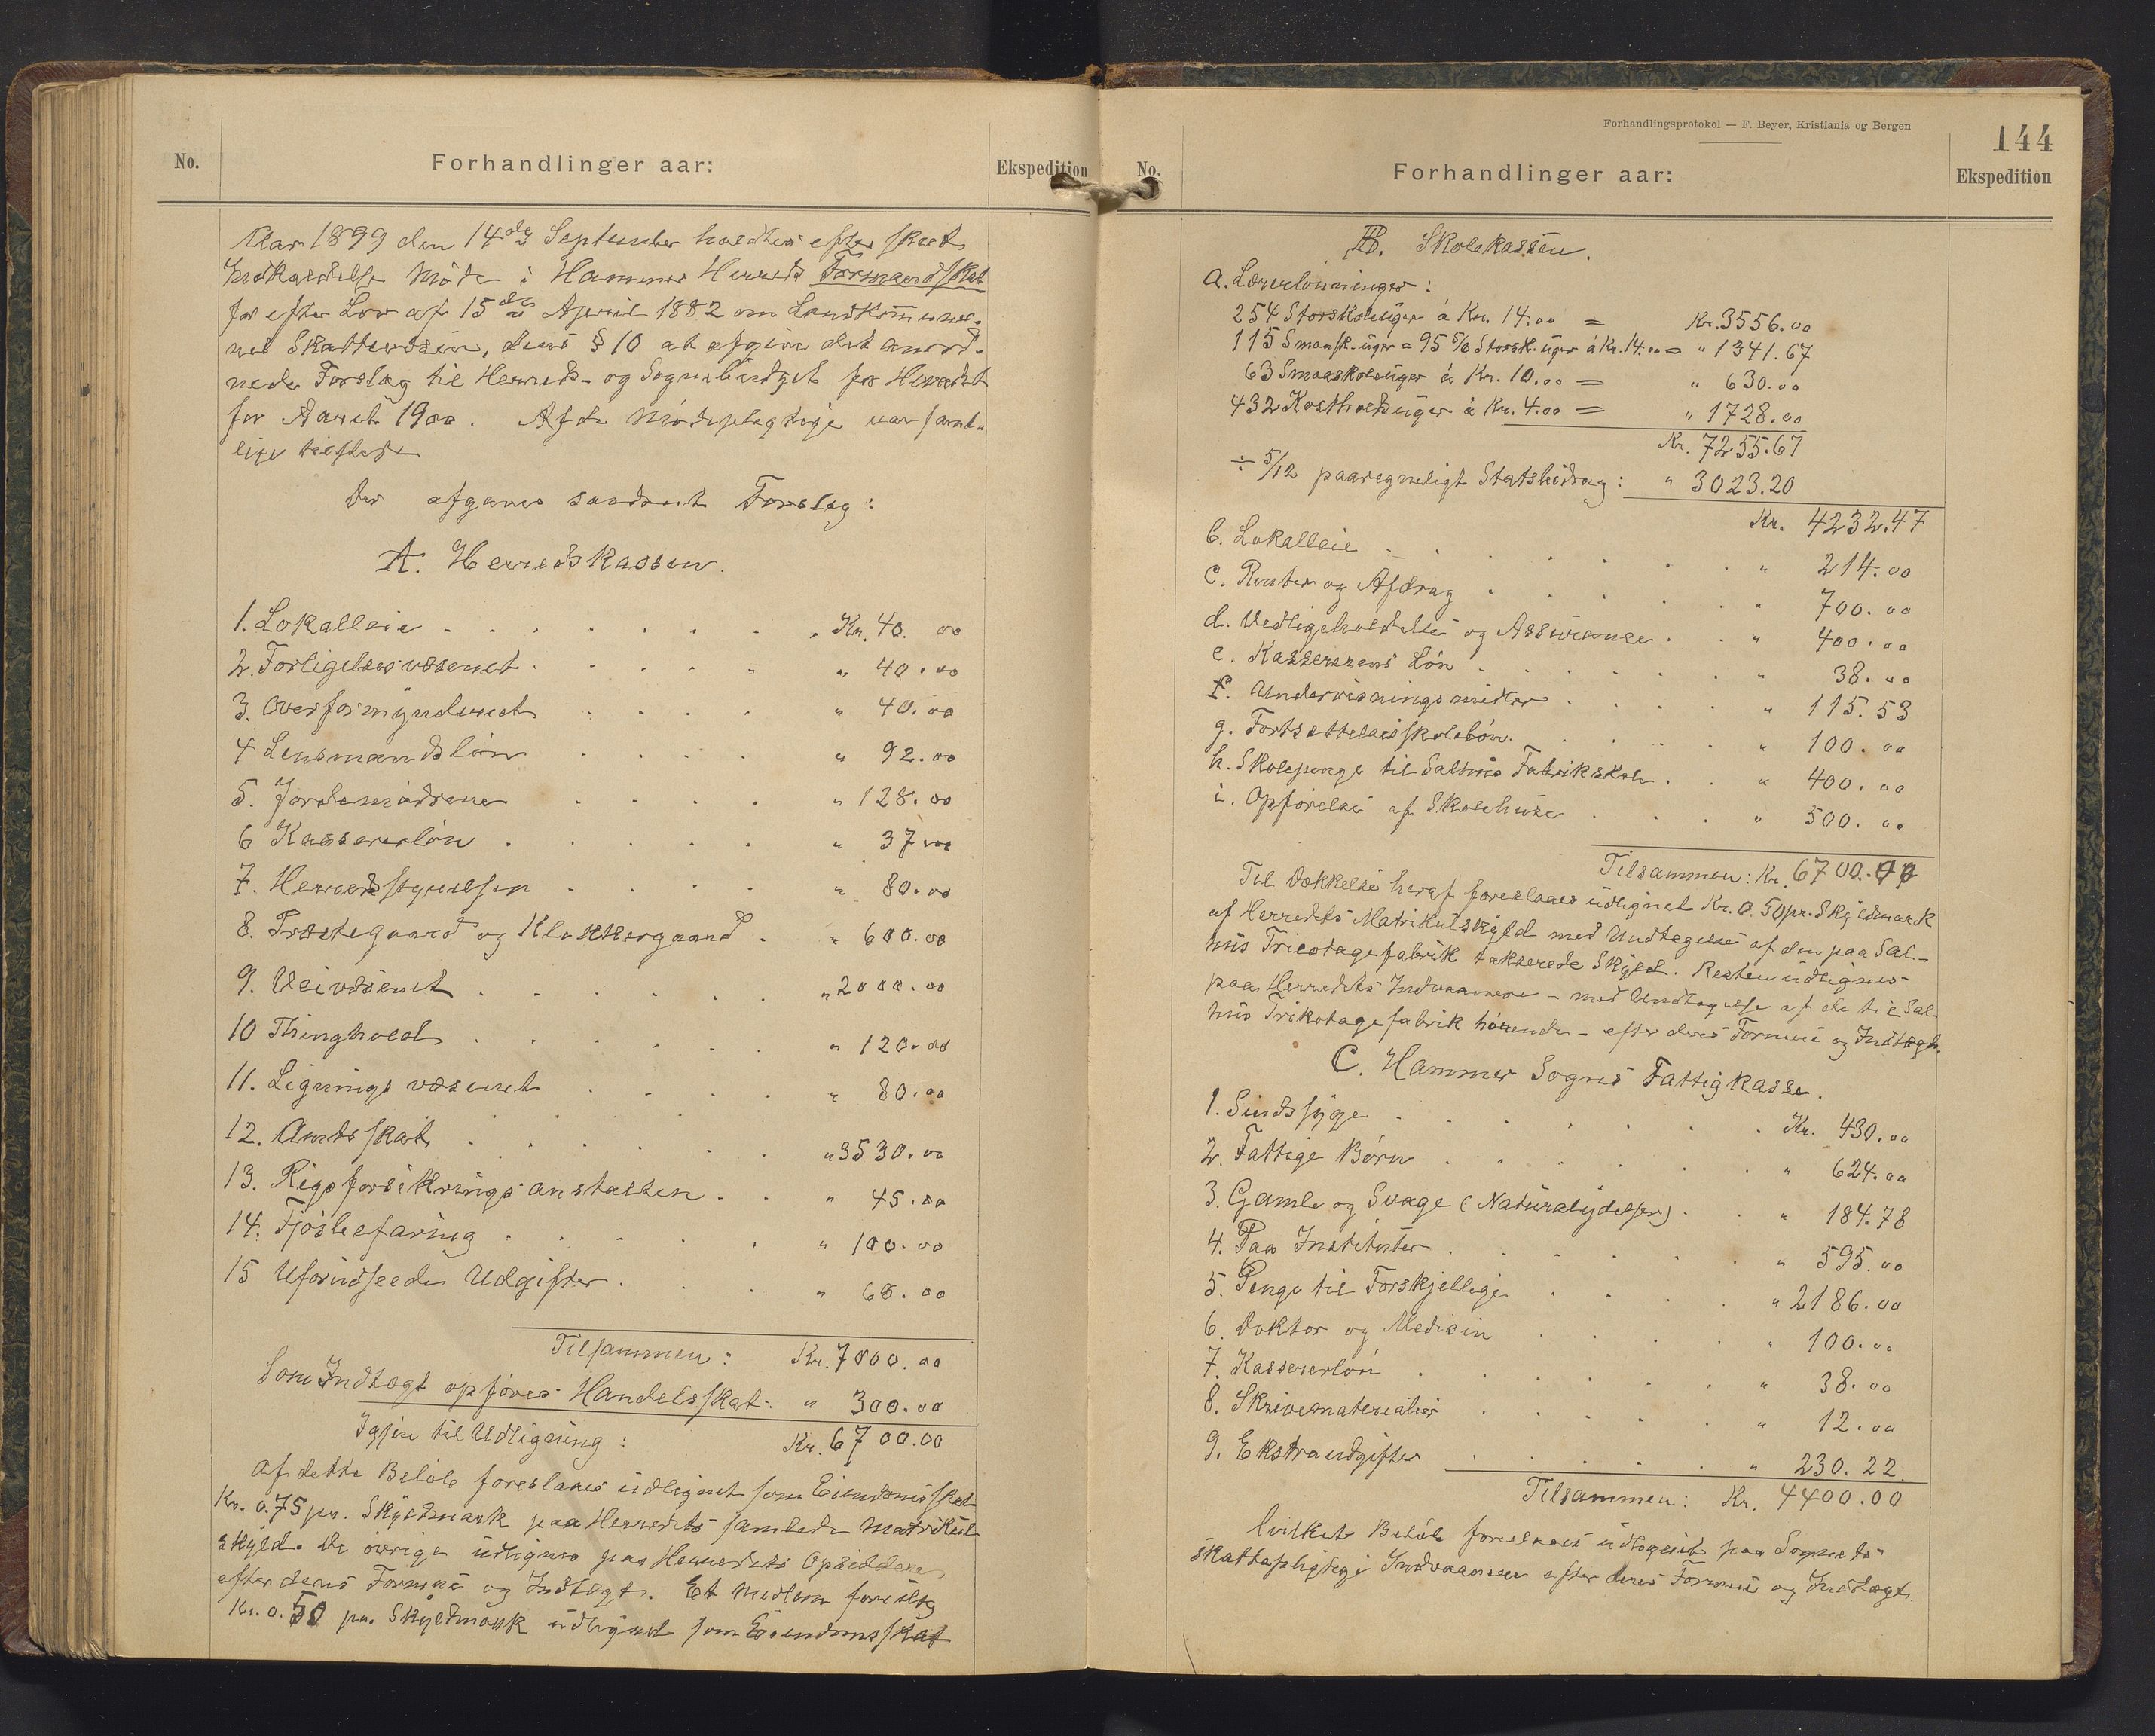 No.
Forhandlinger aar:
Ekspedition
Aar 1899 den 14de September holdtes efter skeet
Indkaldelse Møde i Hammer Herreds Formandskab
for efter Lov af 15de April 1882 om Landkommuner-
nes Skattevæsen, dens § 10 at afgive det anord-
nede Forslag til Herreds- og Sognebudget for Herredet
for Aaret 1900. Af de Mødepligtige var samt-
lige tilstede
Der afgaves saadant Forslag:
A. Herredskassen.
1. Lokalleie . . . Kr. 40.00
2. Forligelsesvæsenet . . . " 40.00
3. Overformynderiet . . . " 40.00
4 Lensmandsløn . . . " 92.00
5. Jordemødrene . . . " 128.00
6 Kassererløn . . . " 37.00
7. Herredsstyrelsen . . . " 80.00
8. Præstegaard og Klokkergaard . " 600.00
9. Veivæsenet . . . " 2000.00
10 Thinghold . . . " 120.00
11. Ligningsvæsenet . . . " 80.00
12. Amtsskat . . . " 3530.00
13. Rigsforsikringsanstalten . . " 45.00
14. Fjøsbefaring . . . " 100.00
15 Uforudseede Udgifter . . . " 68.00
Tilsammen: Kr. 7000.00
Som Indtægt opføres Handelsskat: " 300.00
Igjen til Udligning: Kr. 6700.00
Af dette Beløb foreslaaes udlignet som Eiendomsskat
Kr. 0.75 pr. Skyldmark paa Herredets samlede Matrikul-
skyld. De øvrige udlignes paa Herredets Opsiddere
efter deres Formue og Indtægt. Et Medlem foreslog
Kr. 0.50 pr. Skyldmark udlignet som Eiendomsskat
Forhandlingsprotokol — F. Beyer, Kristiania og Bergen
144
No.
Forhandlinger aar:
Ekspedition
B. Skolekassen.
a. Lærerlønninger:
254 Storskoleuger á Kr. 14.00 = Kr. 3556.00
115 Smaask.uger = 95 5/6 Storsk.uger á Kr. 14.00 = " 1341.67
63 Smaaskoleuger á Kr. 10.00 = " 630.00
432 Kostholdsuger á Kr. 4.00 = " 1728.00
Kr. 7255.67
÷ 5/12 paaregneligt Statsbidrag: " 3023.20
Kr. 4232.47
b. Lokalleie . . . " 214.00
c. Renter og Afdrag . . . " 700.00
d. Vedligeholdelse og Assurance . . " 400.00
e. Kassererens Løn . . . " 38.00
f. Undervisningsmidler . . . " 115.53
g. Fortsættelsesskoleløn . . . " 100.00
h. Skolepenge til Salhus Fabrikskole . . " 400.00
i. Opførelse af Skolehuse . . . " 500.00
Tilsammen: Kr. 6700.00
Til Dækkelse heraf foreslaaes udlignet Kr. 0.50 pr. Skyldmark
af Herredets Matrikulskyld med Undtagelse af den paa Sal-
hus Tricotagefabrik takserede Skyld. Resten udlignes
paa Herredets Indvaanere – med Undtagelse af de til Sal-
hus Trikotagefabrik hørende – efter deres Formue og Indtægt.
C. Hammer Sogns Fattigkasse.
1. Sindssyge . . . Kr. 430.00
2. Fattige Børn . . . " 624.00
3. Gamle og Svage (Naturalydelser) . . " 184.78
4. Paa Institutter . . . " 595.00
5. Penge til Forskjellige . . . " 2186.00
6. Doktor og Medicin . . . " 100.00
7. Kassererløn . . . " 38.00
8. Skrivematerialier . . . " 12.00
9. Ekstraudgifter . . . " 230.22
Tilsammen: Kr. 4400.00
hvilket Beløb foreslaaes udlignet paa Sognets
skattepligtige Indvaanere efter deres Formue og Indtægt.